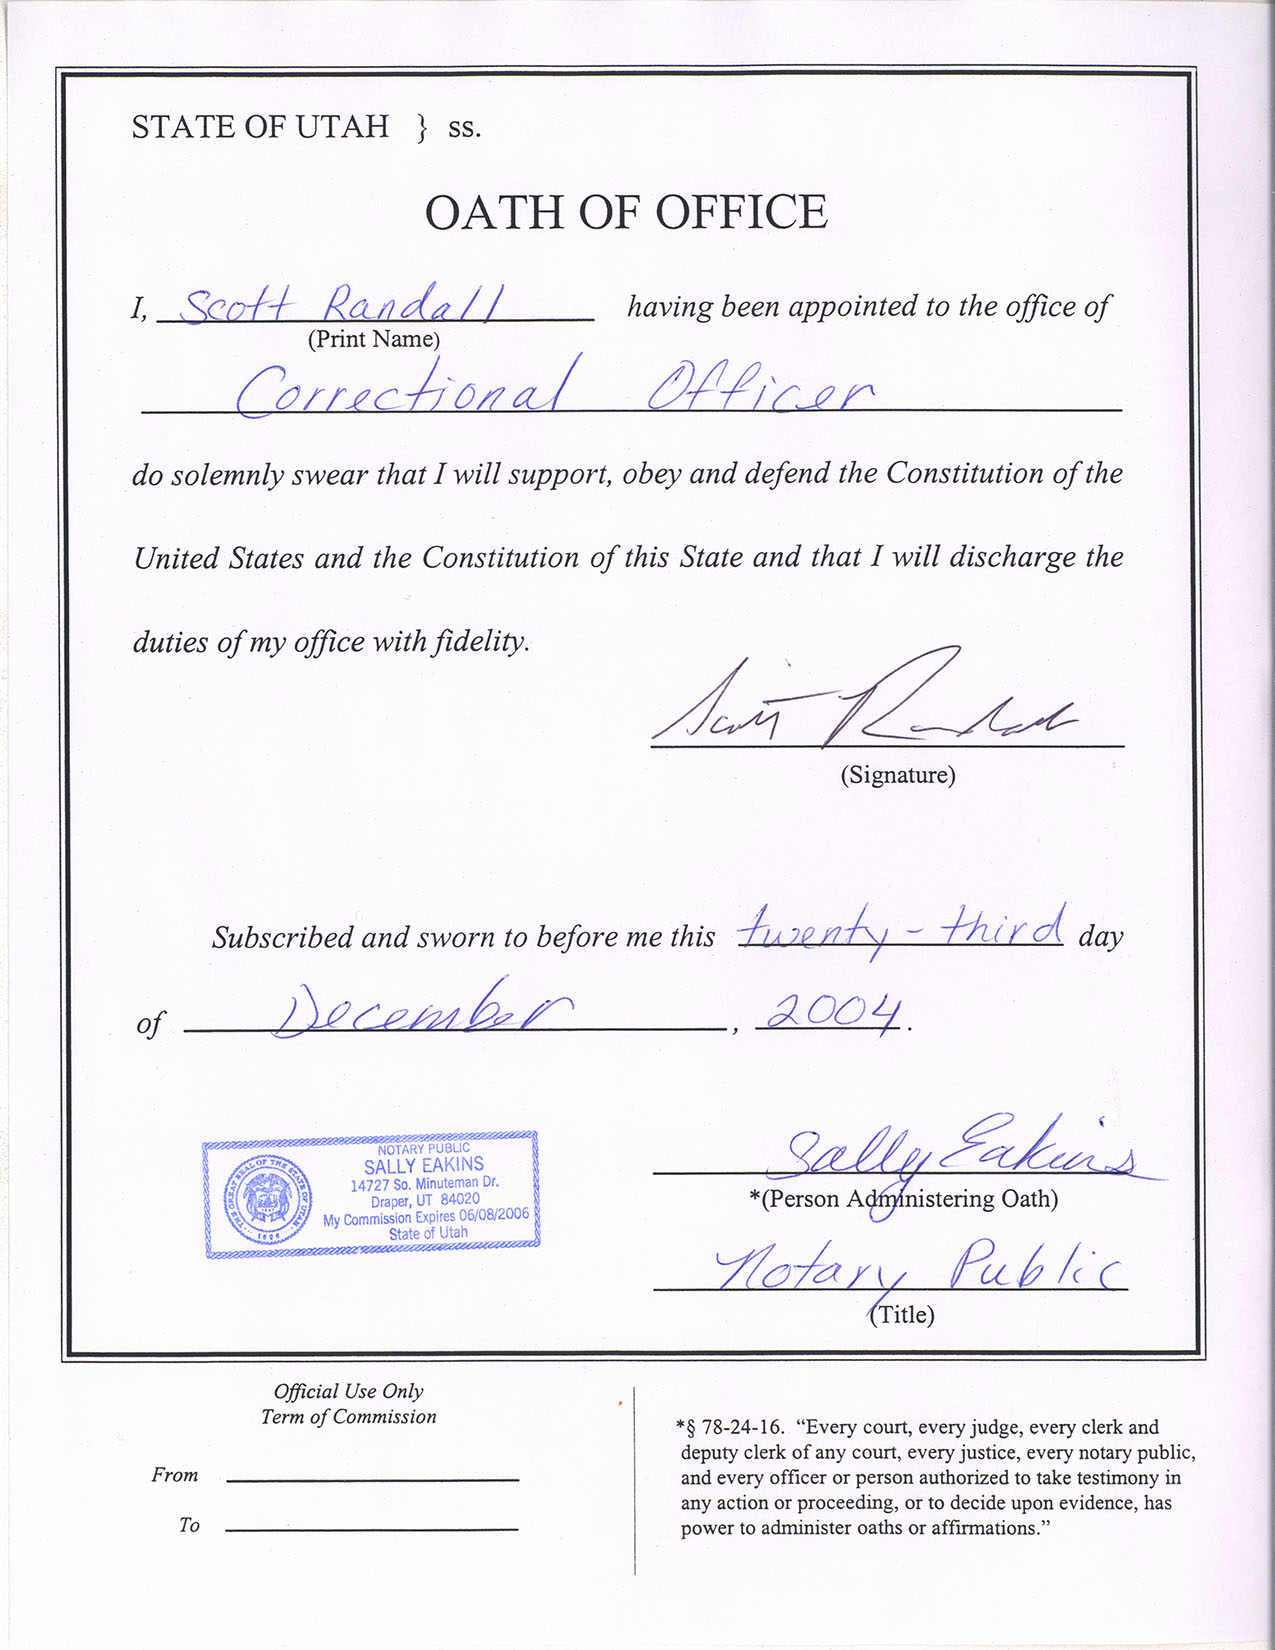 STATE OF UTAH } ss.
OATH OF OFFICE
I, Scott Randall having been appointed to the office of
(Print Name)
Correctional Officer
do solemnly swear that I will support, obey and defend the Constitution of the
United States and the Constitution of this State and that I will discharge the
duties of my office with fidelity.
Scott Randall
(Signature)
Subscribed and sworn to before me this twenty-third day
of December, 2004.
NOTARY PUBLIC
SALLY EAKINS
14727 So. Minuteman Dr.
Draper, UT 84020
My Commission Expires 06/08/2006
State of Utah
THE GREAT SEAL OF THE STATE OF UTAH
1896
Sally Eakins
*(Person Administering Oath)
Notary Public
(Title)
Official Use Only
Term of Commission
From
To
*§ 78-24-16. “Every court, every judge, every clerk and
deputy clerk of any court, every justice, every notary public,
and every officer or person authorized to take testimony in
any action or proceeding, or to decide upon evidence, has
power to administer oaths or affirmations.”